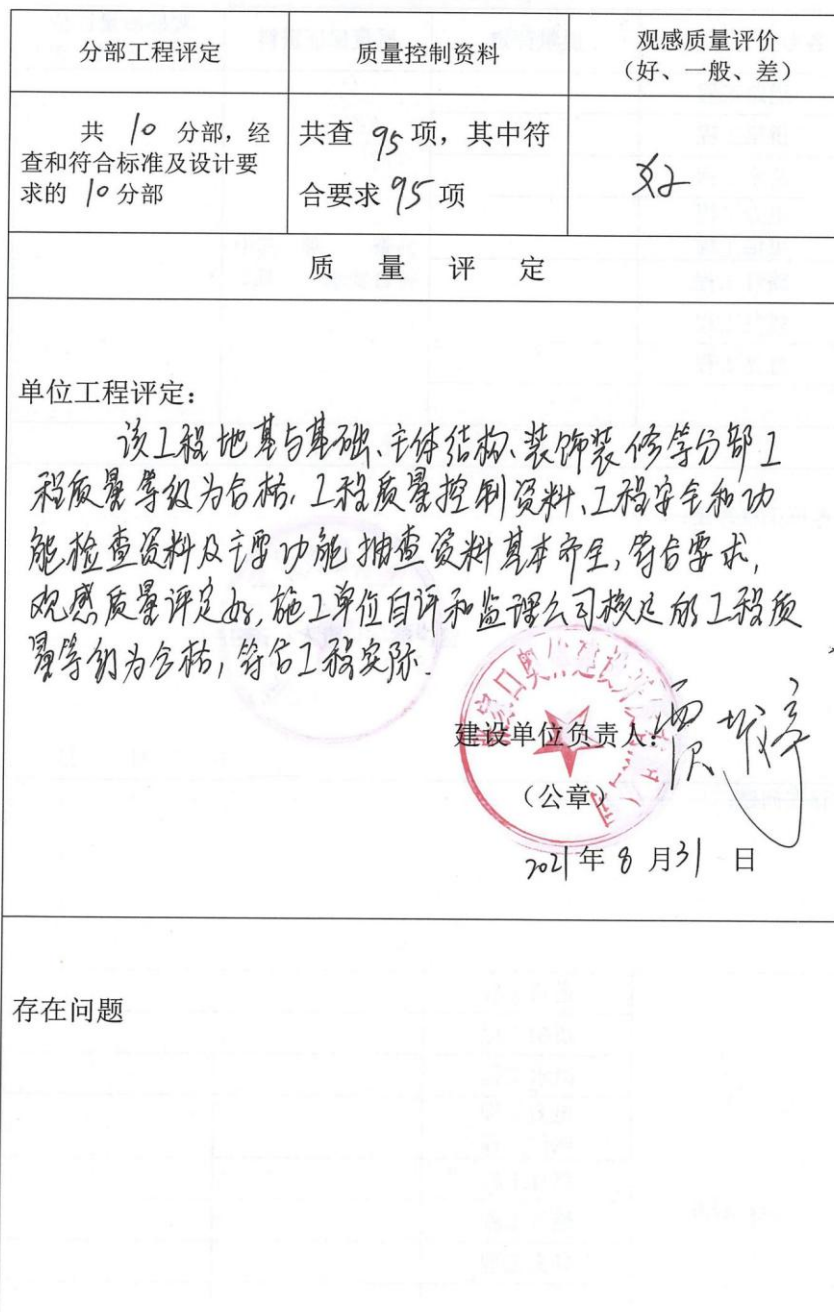 分部工程评定
质量控制资料
观感质量评价
（好、一般、差）
共 10 分部，经
查和符合标准及设计要
求的 10 分部
共查 95 项，其中符
合要求 95 项
好
质 量 评 定
单位工程评定：
该工程地基与基础、主体结构、装饰装修等分部工
程质量等级为合格，工程质量控制资料、工程安全和功
能检查资料及主要功能抽查资料基本齐全，符合要求，
观感质量评定好，施工单位自评和监理公司核定的工程质
量等级为合格，符合工程实际.
建设单位负责人：
（公章）
2021 年 8 月 31 日
存在问题